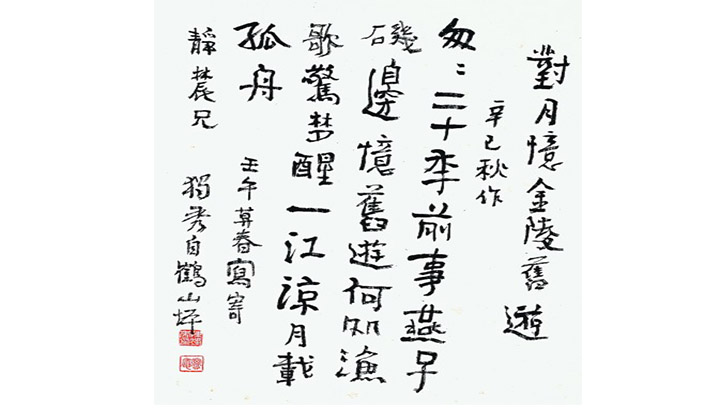 對月憶金陵舊遊
辛巳秋作
匆〻二十秊前事燕子
磯邊憶舊遊何処漁
歌驚梦醒一江涼月載
孤舟
壬午莫春寫寄
靜辳兄
獨秀自鶴山坪